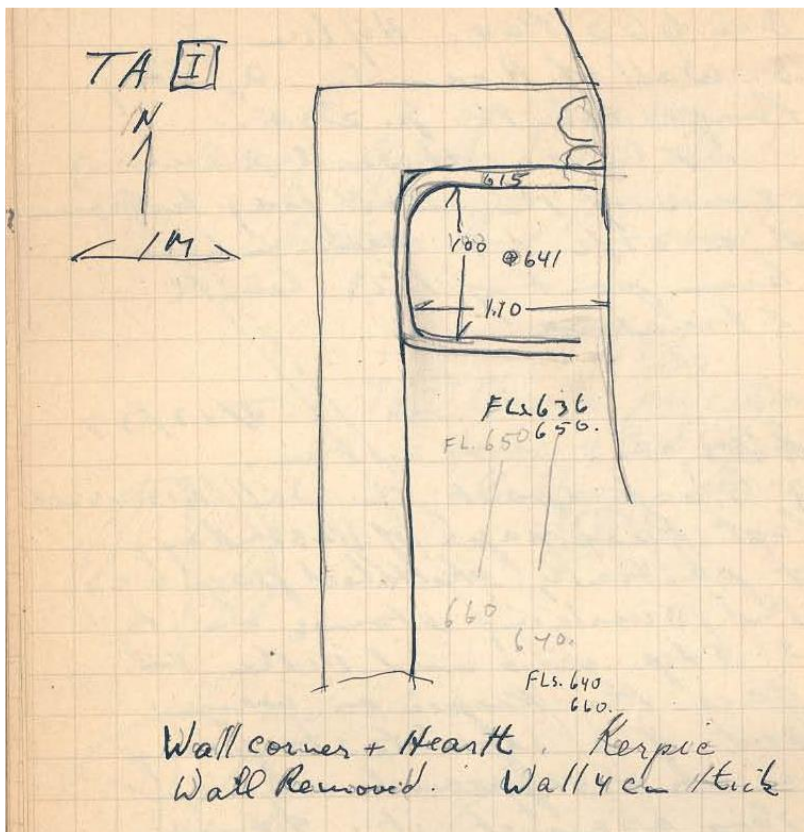 TA I
N
1M
615
1.00
641
1.70
FLs. 636
650.
FL. 650
660
640.
FLs. 640
660.
Wall corner + Hearth. Kerpic
Wall Removed. Wall 4 cm thick